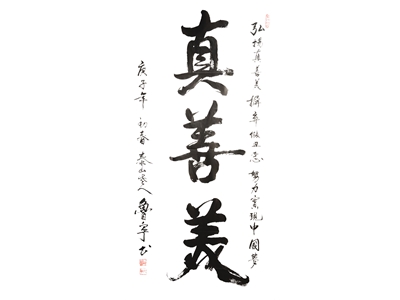 弘扬真善美 摒弃假丑恶 努力实现中国梦
真善美
庚子年初春 泰山 人 鲁宁书